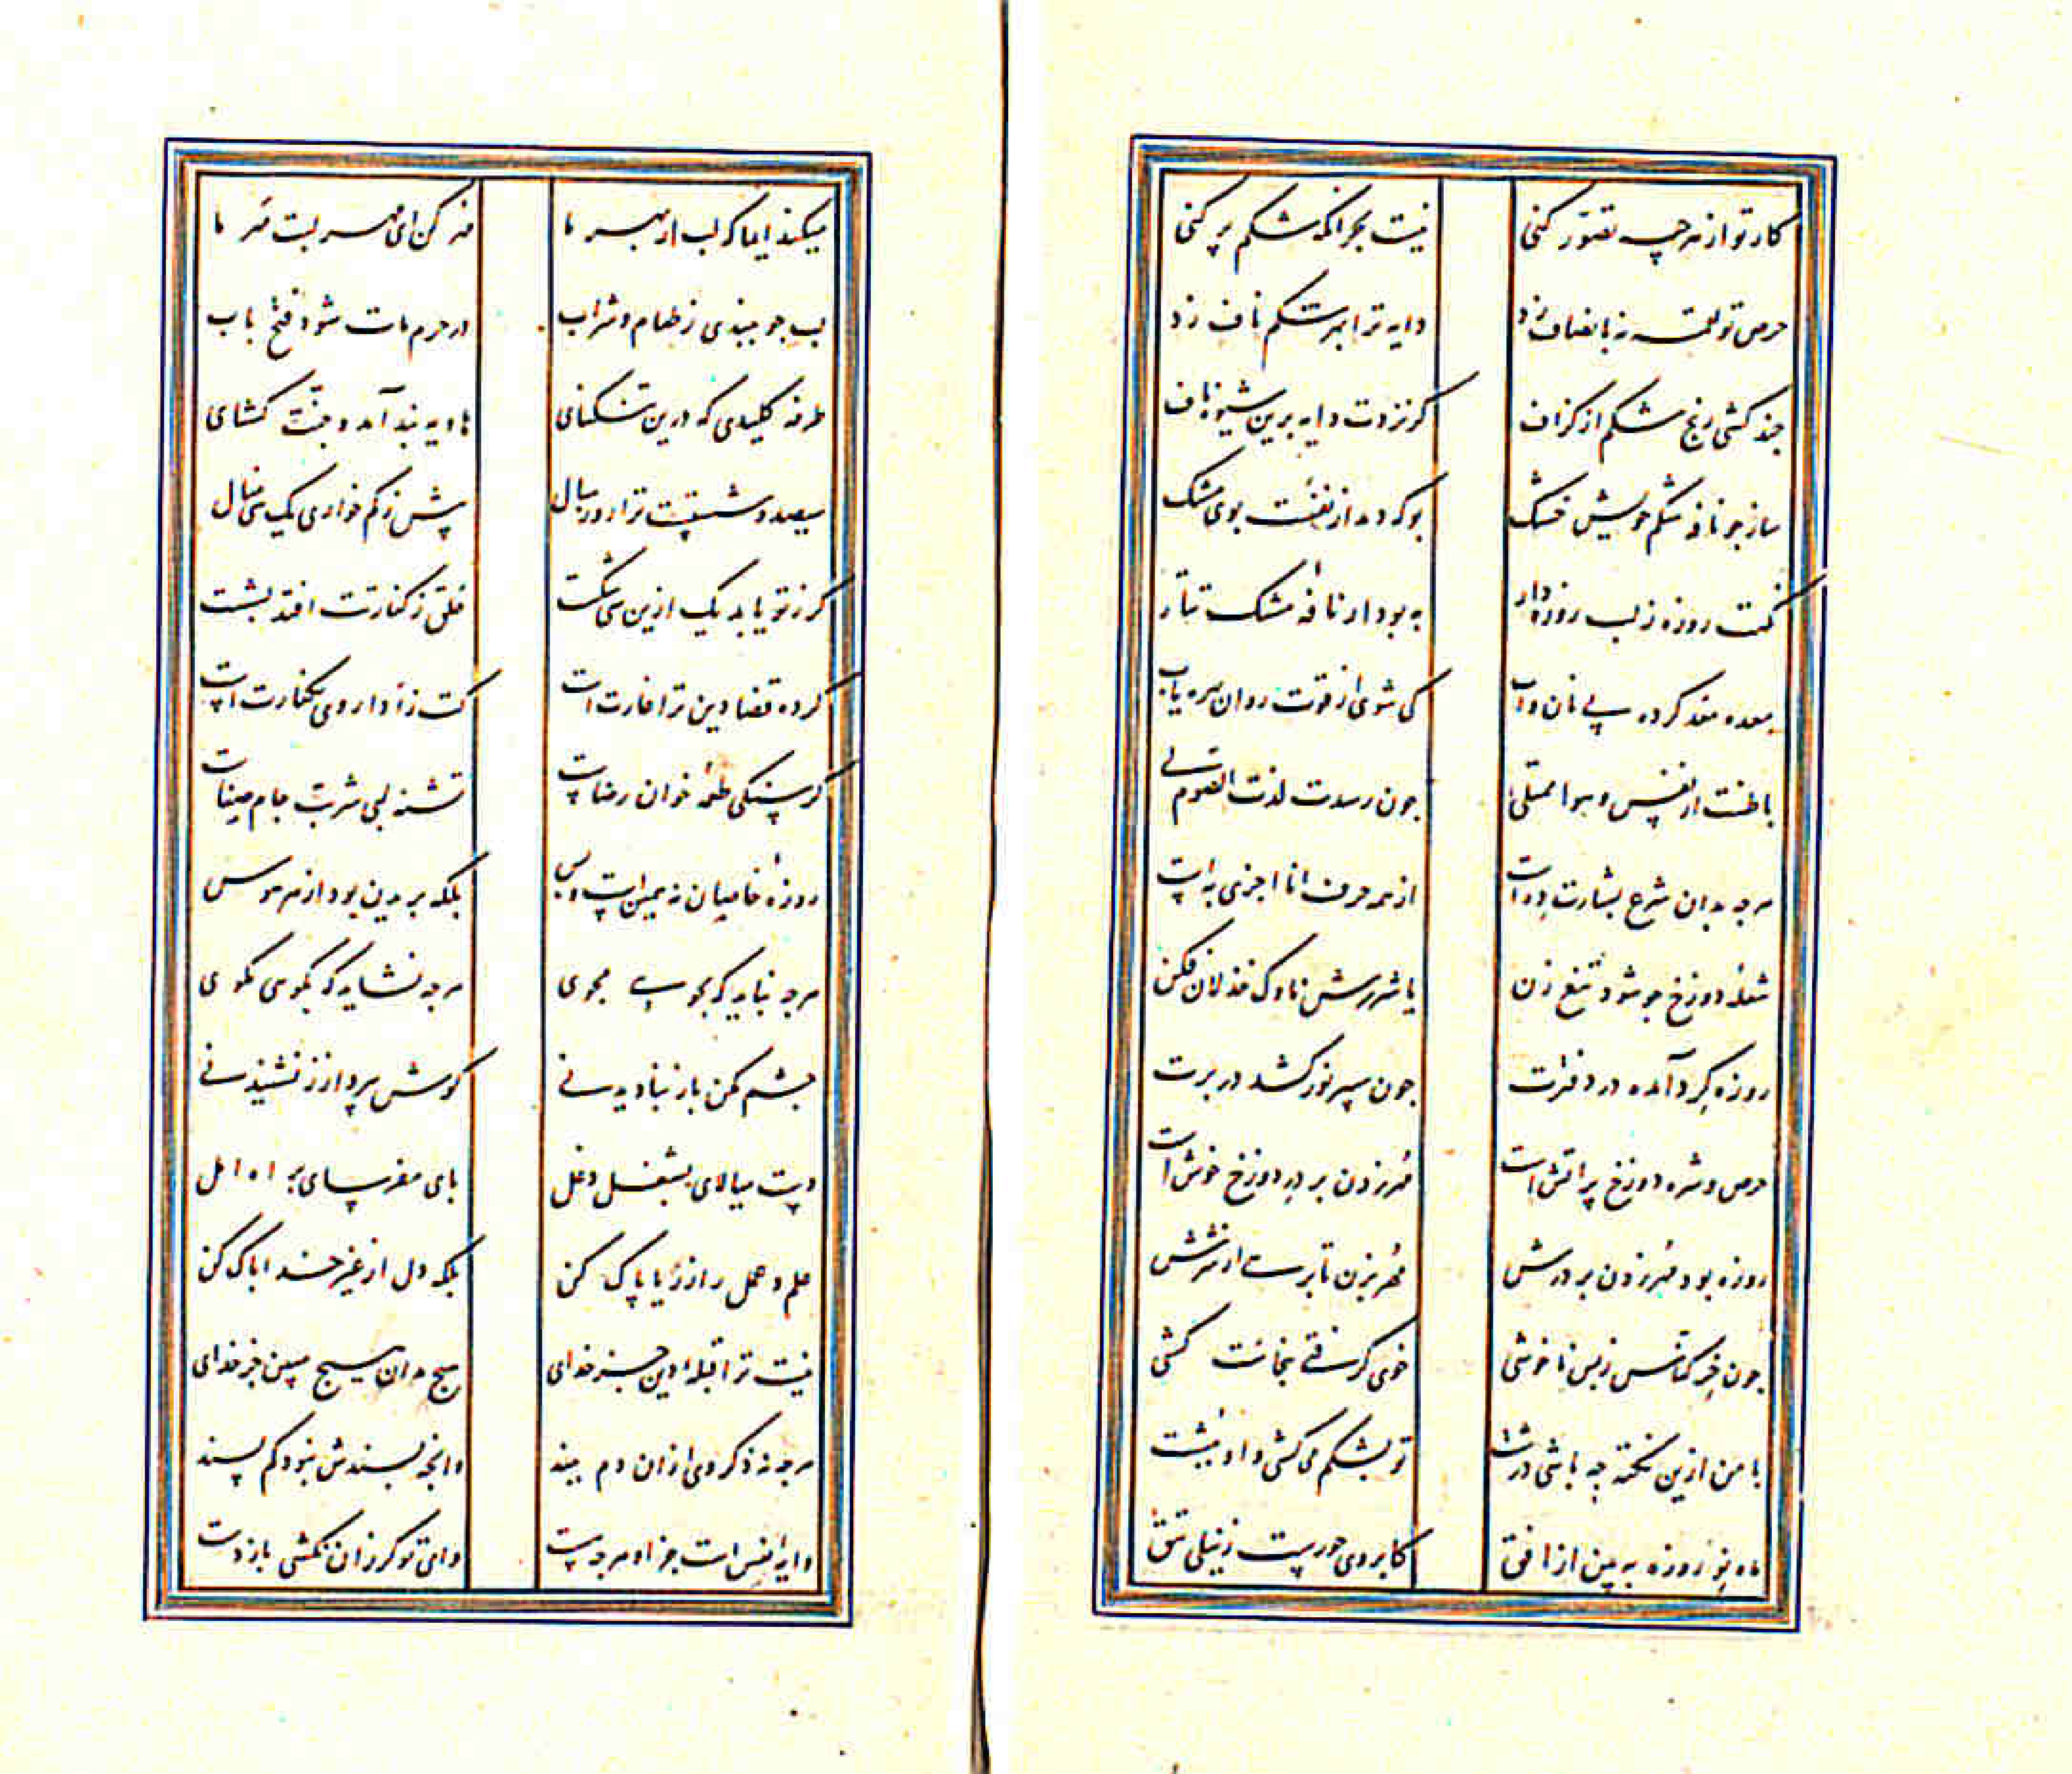 کار تو از هرچه تصور کنی نیست بجز آنکه شکم پر کنی
حرص تو لقمه نه بانصاف زد دایه ترا بر شکم ناف زد
چند کشی رنج شکم از کزاف کر نزدت دایه برین شیوه ناف
ساز چو نافه شکم خویش خشک بو که دمد از نفست بوی مشک
نکهت روزه ز لب روزه‌دار به بود از نافه مشک تتار
معده معد کرده پی نان و آب کی شوی از قوت روان بهره یاب
باطنت از نفس و هوا ممتلی چون رسدت لذت الصوم لی
هرچه بدان شرع بشارت ده است از همه حرف انا اجزی به است
شعله دوزخ چو شود تیغ زن یا شررش ناوک خذلان فکن
روزه بکرد آمده در دفترت چون سپر نور کشد در برت
حرص و شره دوزخ پر آتش است مهر زدن بر در دوزخ خوش است
روزه بود مهر زدن بر درش مهر بزن تا برهی از شرش
چون خر کناس ز بس ناخوشی خوی کرفتی بنجاست کشی
با من ازین نکته چه باشی درشت تو بشکم می کشی و او بپشت
ماه نو روزه به بین از افق کابروی حوریست ز نیلی تتق
میکند ایما که لب از بهر ما مهر کن ای مهر لبت مهر ما
لب چو ببندی ز طعام و شراب در حرم مات شود فتح باب
طرفه کلیدی که درین تنکنای هاویه بند آمد و جنت کشای
سیصد و شصتست ترا روز سال پیش ز کم خواری یک سی منال
کر ز تو یابد یک ازین سی شکست خلق ز کفارتت افتد بشصت
کرده قضا دین ترا غارتست کت ز ادا روی بکفارتست
کرسنکی طعمه خوان رضاست تشنه لبی شربت جام صفاست
روزه خاصیان نه همین است و بس بلکه بریدن بود از هر هوس
هرچه نباید که بجویی مجوی هرچه نشاید که بکویی مکوی
چشم مکن باز بنادیدنی کوش بپرداز ز نشنیدنی
دست میالای بشغل دغل پای مفرسای براه امل
علم و عمل را ز ریا پاک کن بلکه دل از غیر خدا پاک کن
نیست ترا قبله دین جز خدای هیچ مدان هیچ مبین جز خدای
هرچه نه ذکر وی از آن دم ببند وانچه پسندش نبود کم پسند
دایه نفس است جز او هرچه هست وای تو کر زان نکشی باز دست